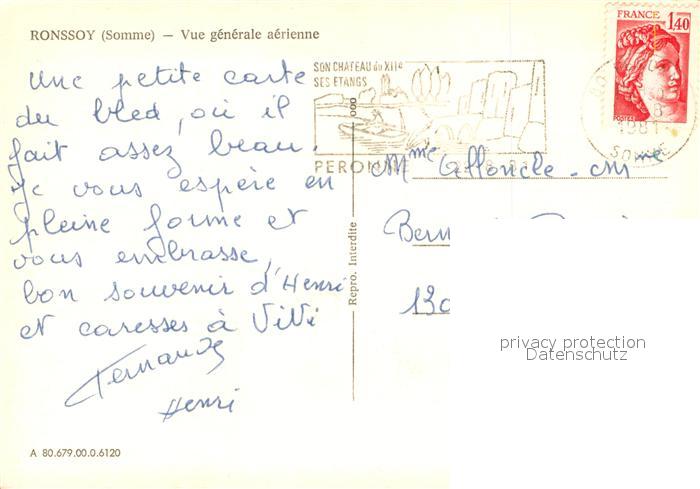 RONSSOY (Somme) — Vue générale aérienne
Une petite carte
du bled, où il
fait assez beau.
Je vous espère en
pleine forme et
vous embrasse,
bon souvenir d'Henri
et caresses à ViVi
Fernande
Henri
A 80.679.00.0.6120
Repro. Interdite
SON CHATEAU du XIIe
SES ETANGS
PERONNE
FRANCE
1,40
POSTES
1981
SOMME
Mme
Bern
130
privacy protection
Datenschutz